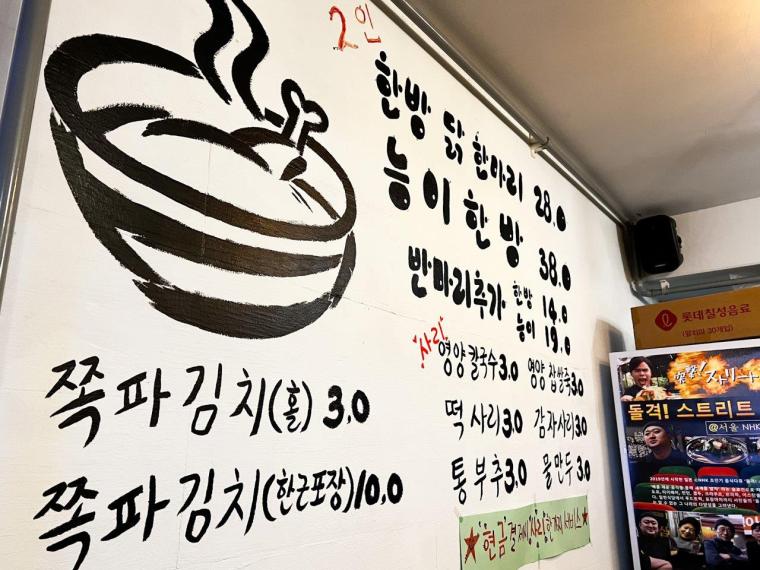 2인
한방 닭 한마리 28.0
능이한방 38.0
반마리추가 한방 14.0
능이 19.0
사리
영양칼국수3.0 영양찹쌀죽3.0
떡사리3.0 감자사리3.0
통부추3.0 물만두3.0
쪽파김치(홀) 3.0
쪽파김치(한근포장)10.0
★현금결제시 사리한가지 서비스★
롯데칠성음료
돌격! 스트리트
@서울 NHK